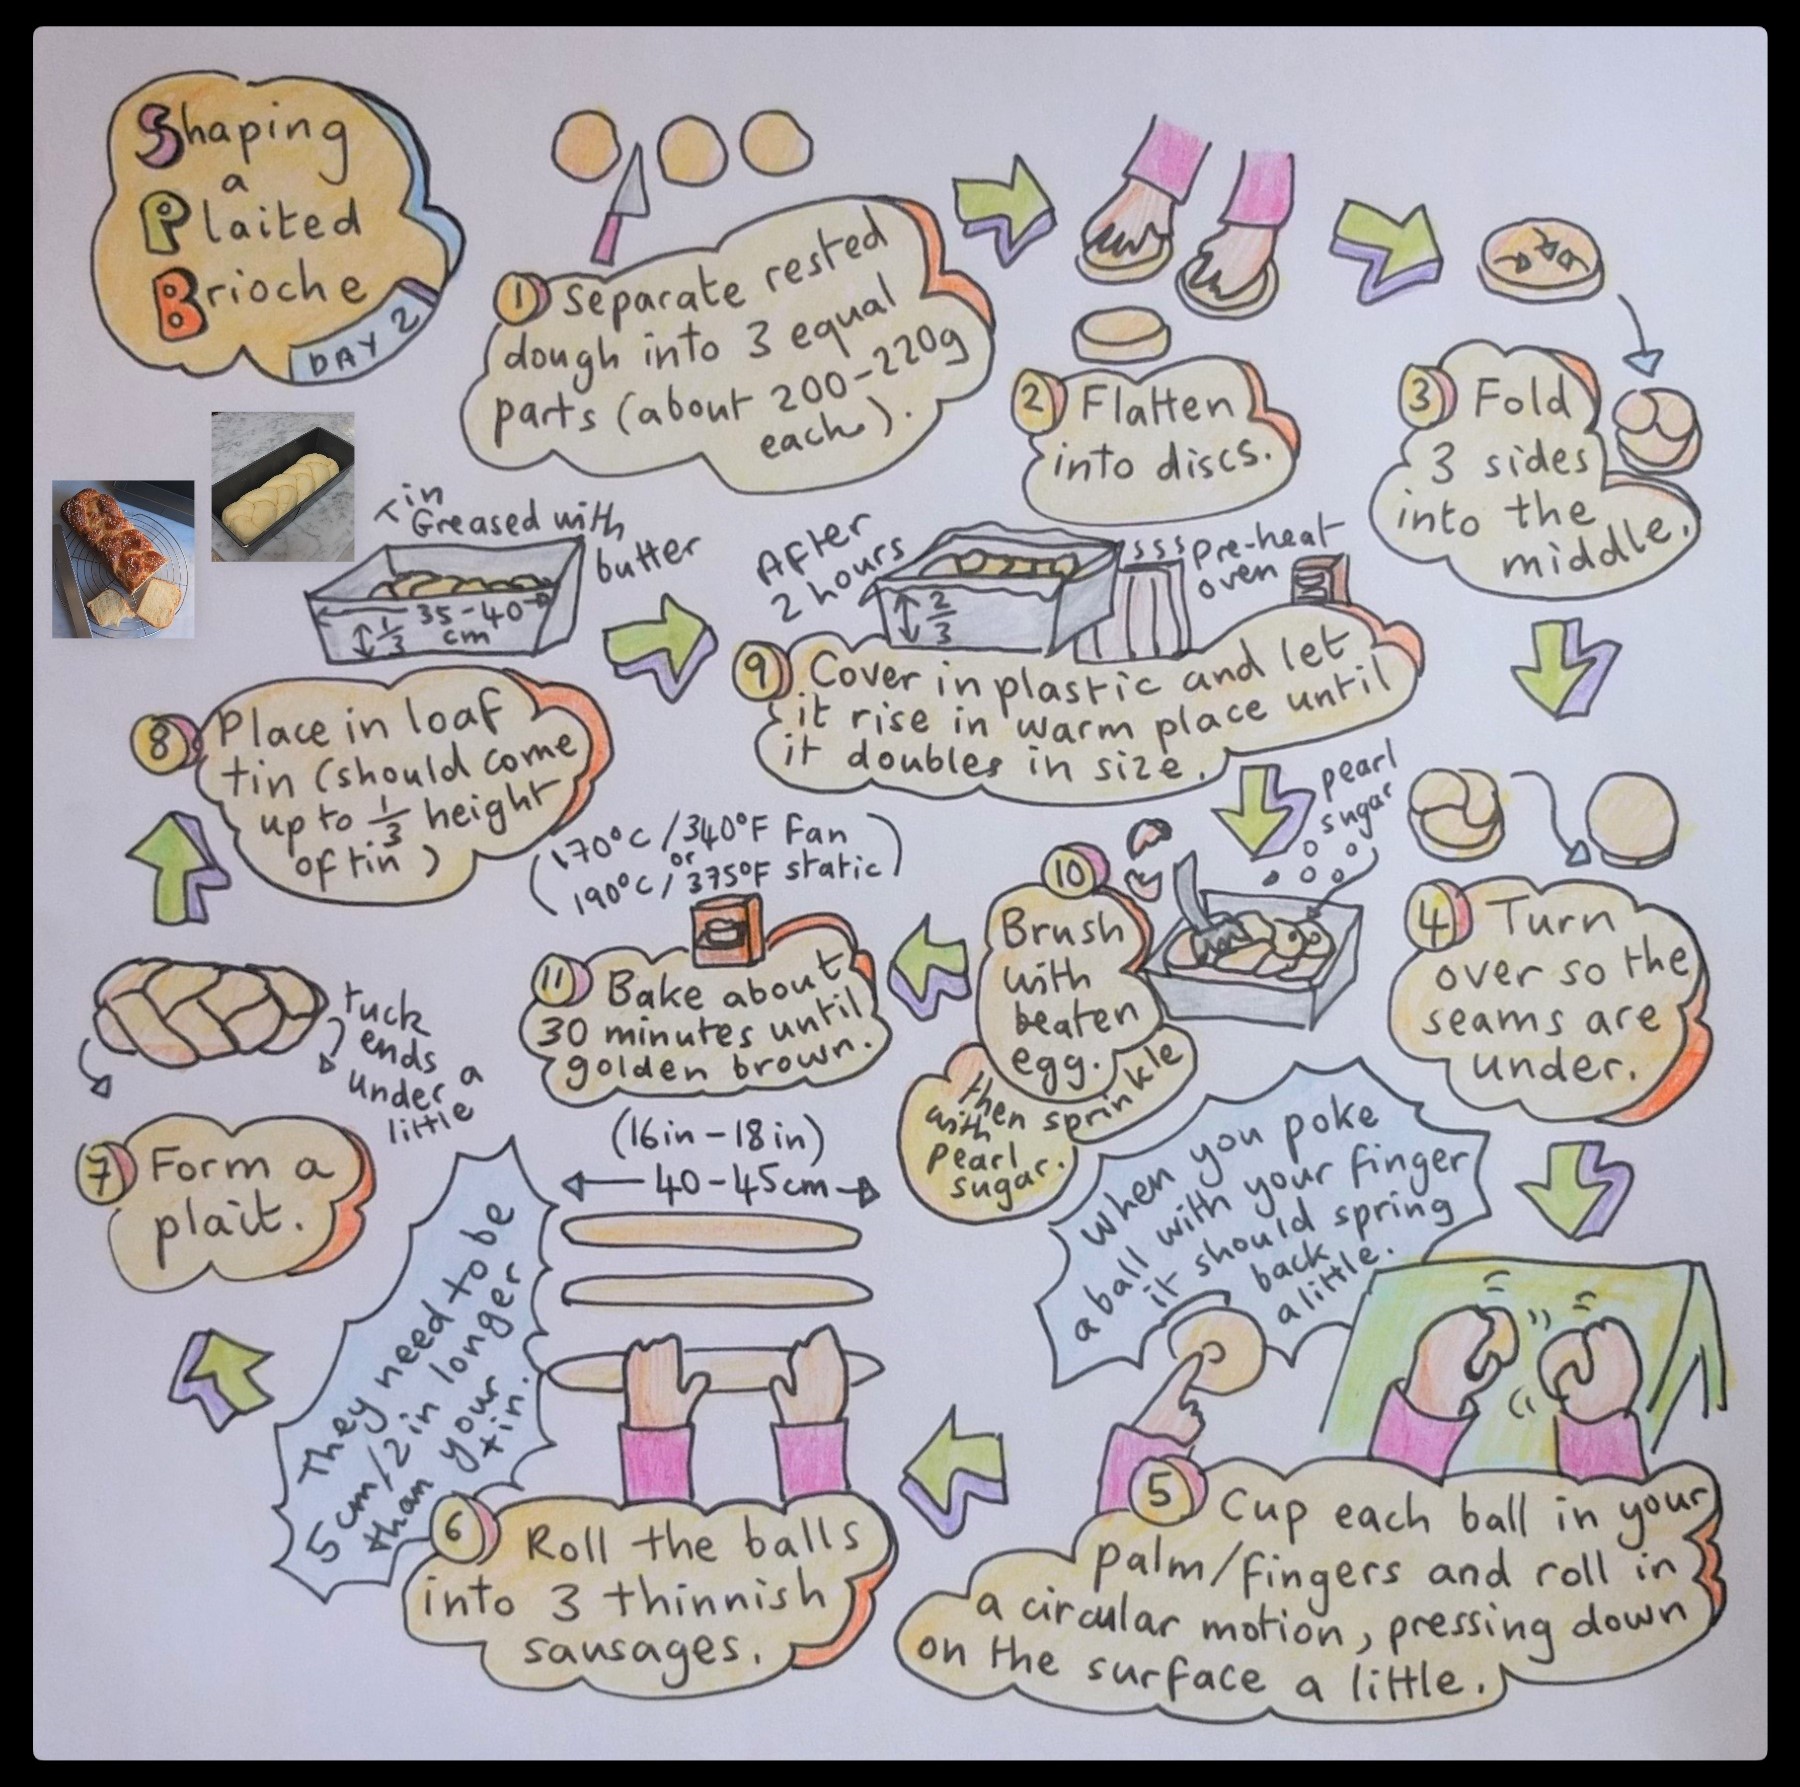 Shaping
a
Plaited
Brioche
DAY 2
1 Separate rested
dough into 3 equal
parts (about 200-220g
each).
2 Flatten
into discs.
3 Fold
3 sides
into the
middle.
4 Turn
over so the
seams are
under.
when you poke
a ball with your finger
it should spring
back
a little.
5 Cup each ball in your
palm/fingers and roll in
a circular motion, pressing down
on the surface a little.
(16in-18in)
40-45cm
They need to be
5cm/2in longer
than your
tin.
6 Roll the balls
into 3 thinnish
sausages.
tuck
ends
under a
little
7 Form a
plait.
Tin
Greased with
butter
35-40
cm
1/3
8 Place in loaf
tin (should come
up to 1/3 height
of tin)
After
2 hours
2/3
sss
Pre-heat
oven
9 Cover in plastic and let
it rise in warm place until
it doubles in size.
pearl
sugar
10
Brush
with
beaten
egg.
then sprinkle
with
Pearl
sugar.
(170°C/340°F Fan
or
190°C/375°F static)
11 Bake about
30 minutes until
golden brown.